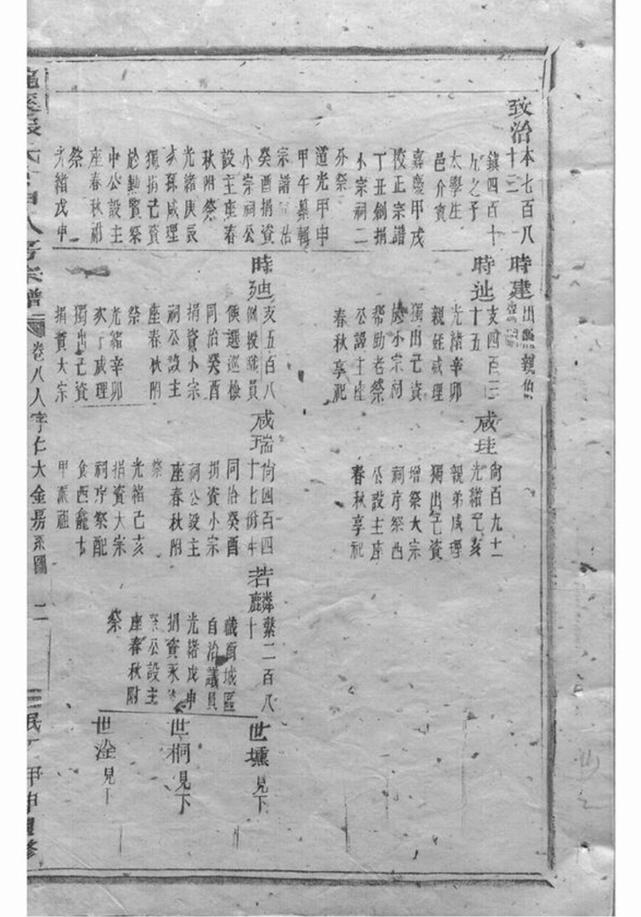 致治
本七百八
十三
鎮四百十
九之子
太學生
邑介賓
嘉慶甲戌
校正宗譜
丁丑創捐
小宗祠二
分祭
道光甲申
甲午纂輯
宗譜
癸酉捐資
小宗祠公
設主座春
秋附祭
光緒庚辰
亥孫咸理
獨捐己資
於勲賢祭
中公設主
座春秋祔
祭
光緒戊申
時建
出繼親伯
時迆
支四百三
十五
光緒辛卯
親姪咸理
獨出己資
於小宗祠
帮助老祭
公設主座
春秋享祀
咸珪
尙百九十一
光緒己亥
親弟咸理
獨出己資
增祭大宗
祠序祭西
公設主座
春秋享祀
時𨒪
支五百八
例授職員
候選巡檢
同治癸酉
捐資小宗
祠公設主
座春秋附
祭
光緒辛卯
次子咸理
獨出己資
捐資大宗
咸瑞
尙四百四
十七份年
同治癸酉
捐資小宗
祠公設主
座春秋附
祭
光緒己亥
捐資大宗
祠序祭配
食西龕七
甲派祖
若麟
繫二百八
十
職商城區
自治議員
光緒戊申
座春秋附
祭
世壎見下
世桐見下
世淦見下
卷八人字仁大金嘉系圖 二